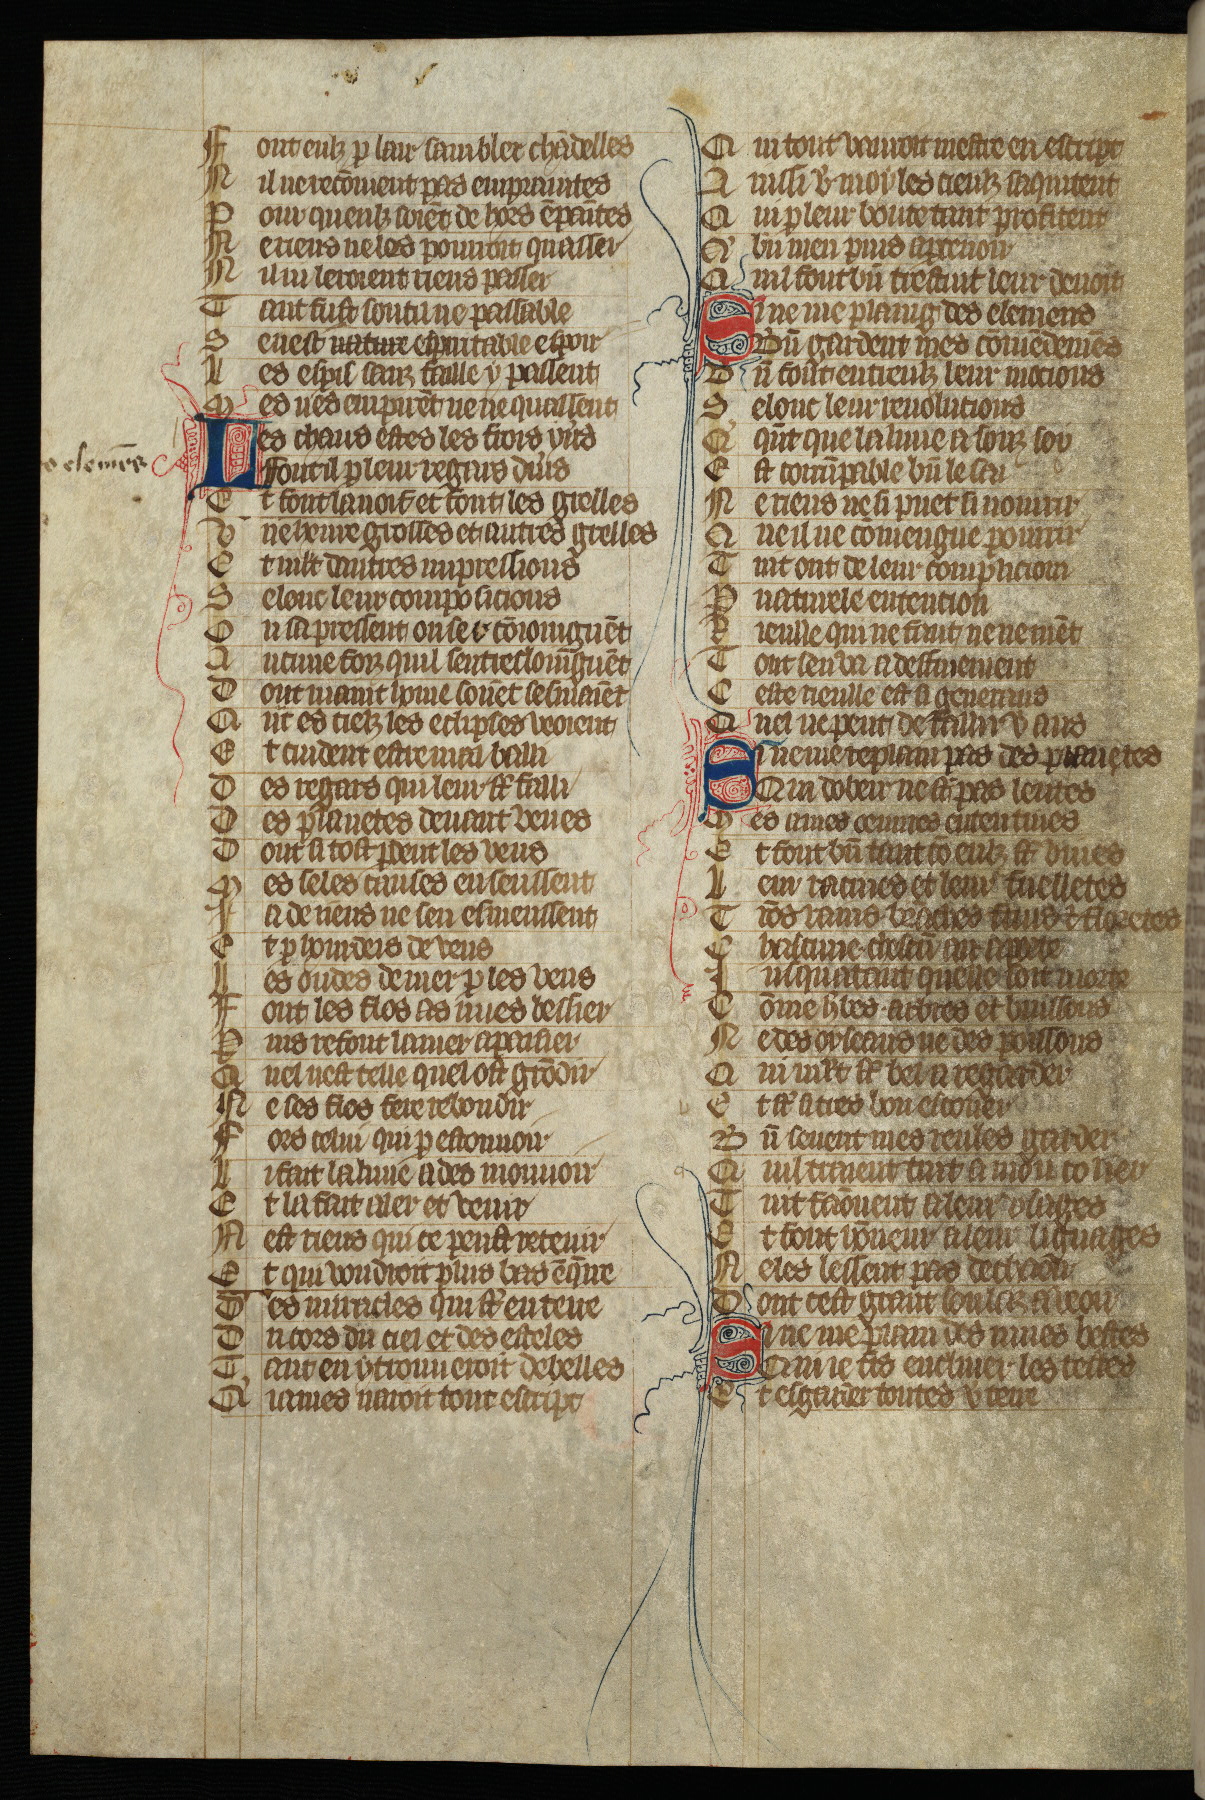 Font eulz p lair sambler chādelles
Nil ne recōment pas empraintes
Pour queulz soiēt de hors ēpaītes
Ne riens ne les pourroit quasser
Nil ni leroient riens passer
Tant fust soutil ne passable
Se nest nature espitable espoir
Les espis sanz faille y passent
Mes nes empirēt ne ne quassent
Les chaus estes les frois yūs
Font il p leur regars diūs
o elemēs
Et font la noif et font les grelles
Une heure grosses et autres grelles
Et mlt dautres impressions
Selonc leur composicions
On sapressent ou se cōioingnēt
Aucune fois quil sentreloingnēt
Dont maint hōme souēt sesmaiēt
Qāt es cielz les eclipses voient
Et cuident estre mal balli
Des regars qui leur st falli
Des planetes deuant veues
Dont si tost pdent les veues
Mes se les causes en seussent
Ia de riens ne sen esmeussent
Et p hourdeis de vens
Les ondes de mer p les vens
Font les flos as nues besier
Puis refont la mer apaisier
Quel nest telle quel ost grōdir
Ne ses flos fere rebondir
Fors celui qui p estouuoir
Li fait la lune ades mouuoir
Et la fait aler et venir
Nest riens qui ce peust retenir
Et qui voudroit plus bas ēqrre
Des miracles qui st en terre
Du cors du ciel et des esteles
Tant en y trouueroit de belles
Qiames nauroit tout escript
Qui tout vauroit mestre en escript
Ainssi v moy les cielz saquitent
Qui p leur bonte tant profitent
Q bn men puis aperceuoir
Quil font bn trestuit leur deuoir
Si ne me plaing des elemens
Bn gardent mes cōmēdemēs
Bn font entreulz leur mixcions
Selonc leur reuolucions
Qr qnt que la lune a souz soy
Est corrūpable bn le sai
Ne riens ne si puet si nourrir
Que il ne cōuiengne pourrir
Tuit ont de leur cōplicion
P naturele entencion
Rieulle qui ne faut ne ne mēt
Tout sen va a desfinement
Ceste rieulle est si generaus
Quel ne peut defaillir v aus
Si ne me replain pas des planetes
Qui dobeir ne st pas lentes
Et font bn tant cō eulz st viues
Leur racines et leur fuelletes
Cōme hles arbres et buissons
Ne des oyseaus ne des poissons
Qui mlt st bel a regarder
Et st si tres bon escolier
Bn seuent mes rieules garder
Quil traient tuit a mon colier
Tuit faōnent a leur vsages
Et font hōneur a leur lignages
Ne les lessent pas decheoir
Dont cest grant soulaz a veoir
Si ne me plain des mues bestes
Qui ie fis encliner les testes
Et esgarder toutes v terre